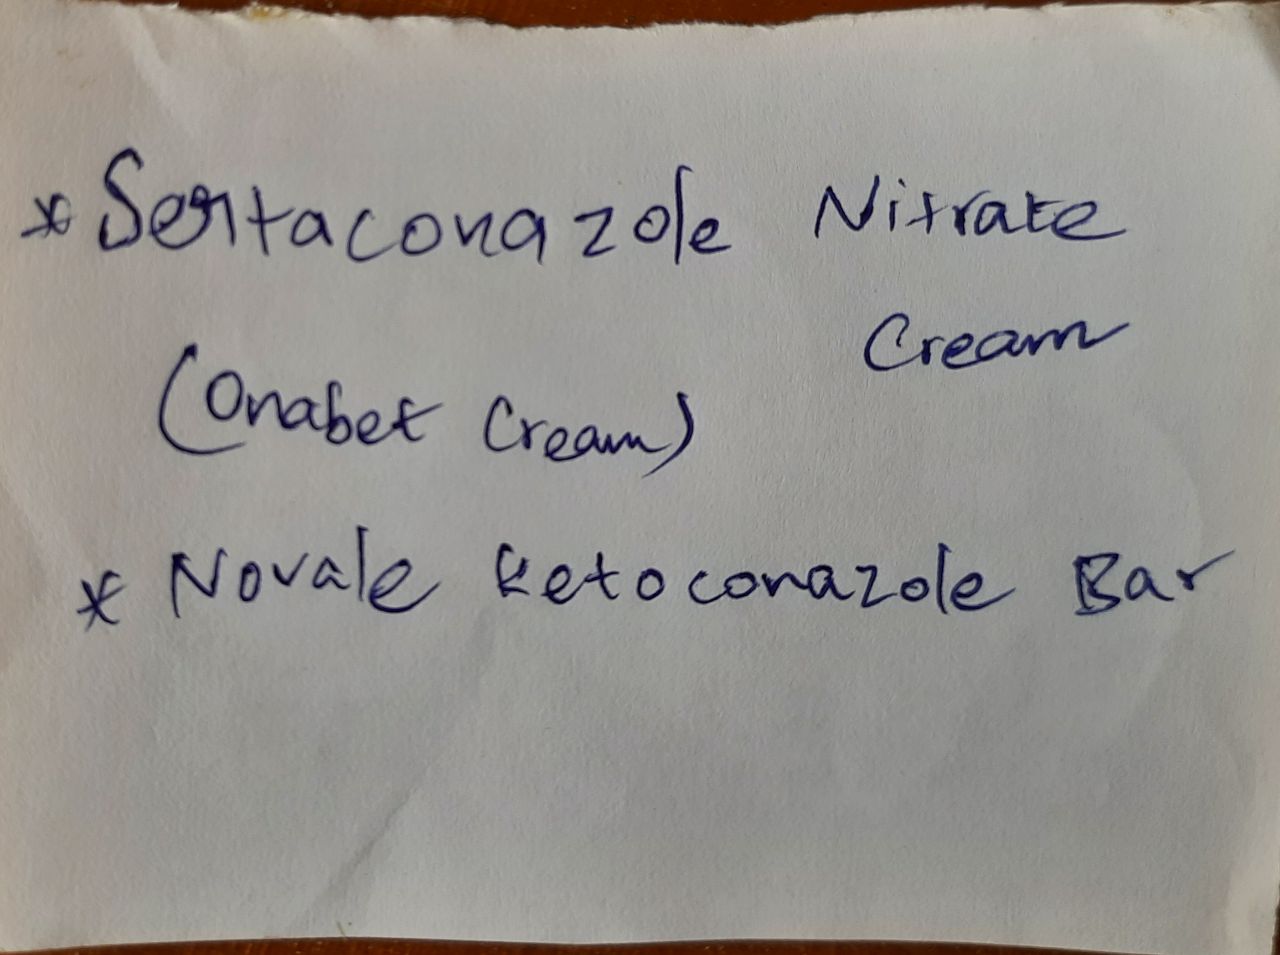 * Sertaconazole Nitrate
Cream
(Onabet Cream)
* Novale Ketoconazole Bar